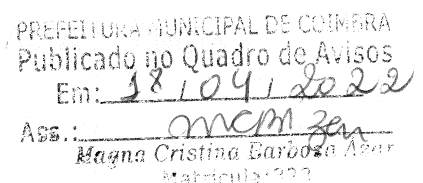 PREFEITURA MUNICIPAL DE COIMBRA
Publicado no Quadro de Avisos
Em: 18 / 04 / 2022
Ass.:
Magna Cristina Barboza Azar
Matrícula: 333